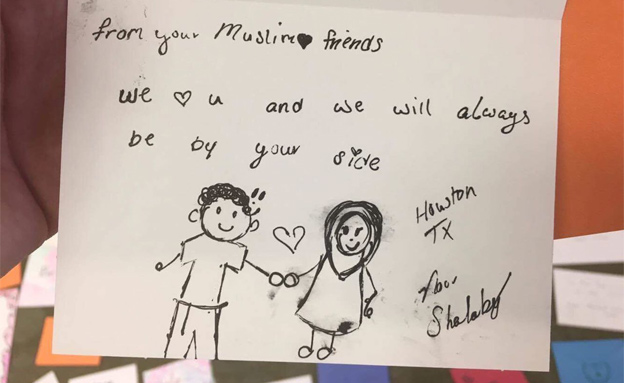 from your Muslim♥ friends
we ♡ u and we will always
be by your side
Houston
TX
Shalaby